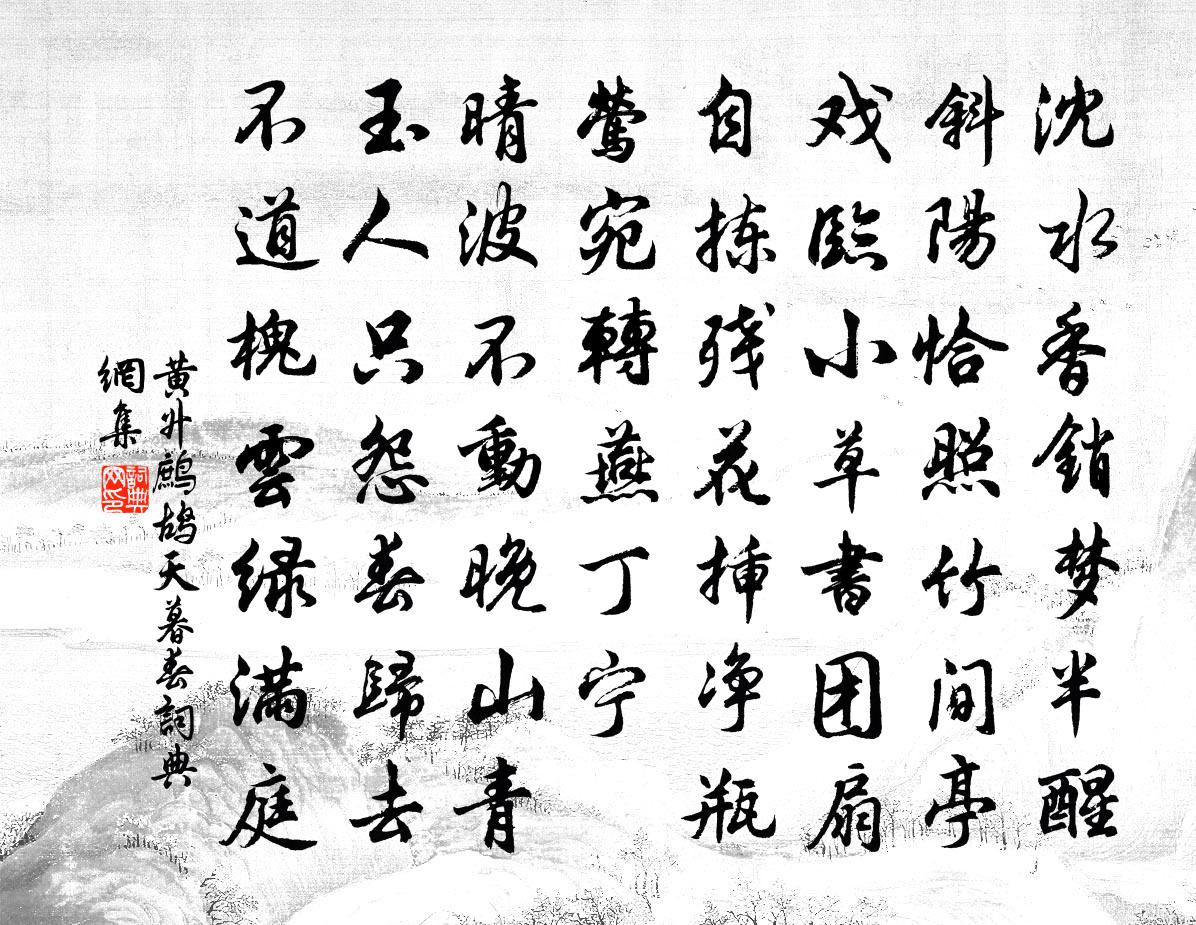 沈水香銷梦半醒
斜陽恰照竹间亭
戏臨小草書团扇
自拣残花揷净瓶
莺宛轉燕丁宁
晴波不動晚山青
玉人只怨春歸去
不道槐雲绿满庭
黄升鹧鸪天暮春詞典
網集
詞典网印